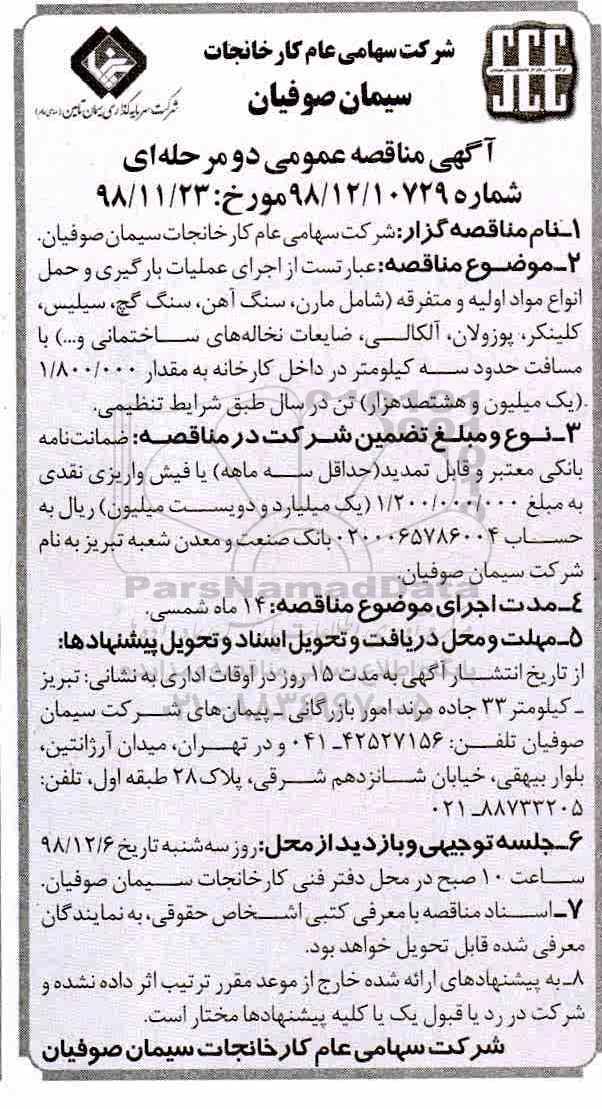 شرکت سهامی عام کارخانجات
سیمان صوفیان
SCC
شرکت سرمایه گذاری سیمان تامین (سهامی عام)
آگهی مناقصه عمومی دو مرحله‌ای
شماره ۹۸/۱۲/۱۰۷۲۹مورخ: ۹۸/۱۱/۲۳
۱ـ نام مناقصه گزار: شرکت سهامی عام کارخانجات سیمان صوفیان.
۲ـ موضوع مناقصه: عبارتست از اجرای عملیات بارگیری و حمل
انواع مواد اولیه و متفرقه (شامل مارن، سنگ آهن، سنگ گچ، سیلیس،
کلینکر، پوزولان، آلکالی، ضایعات نخاله‌های ساختمانی و...) با
مسافت حدود سه کیلومتر در داخل کارخانه به مقدار ۱/۸۰۰/۰۰۰
(یک میلیون و هشتصدهزار) تن در سال طبق شرایط تنظیمی.
۳ـ نوع و مبلغ تضمین شرکت در مناقصه: ضمانت‌نامه
بانکی معتبر و قابل تمدید(حداقل سه ماهه) یا فیش واریزی نقدی
به مبلغ ۱/۲۰۰/۰۰۰/۰۰۰ (یک میلیارد و دویست میلیون) ریال به
حساب ۰۲۰۰۰۶۵۷۸۶۰۰۴ بانک صنعت و معدن شعبه تبریز به نام
شرکت سیمان صوفیان.
ParsNamadData
۴ـ مدت اجرای موضوع مناقصه: ۱۴ ماه شمسی.
۵ـ مهلت و محل دریافت و تحویل اسناد و تحویل پیشنهادها:
از تاریخ انتشار آگهی به مدت ۱۵ روز در اوقات اداری به نشانی: تبریز
ـ کیلومتر ۳۳ جاده مرند امور بازرگانی ـ پیمان‌های شرکت سیمان
صوفیان تلفن: ۴۲۵۲۷۱۵۶ـ ۰۴۱ و در تهران، میدان آرژانتین،
بلوار بیهقی، خیابان شانزدهم شرقی، پلاک ۲۸ طبقه اول، تلفن:
۸۸۷۳۳۲۰۵ـ ۰۲۱
۶ـ جلسه توجیهی و بازدید از محل: روز سه‌شنبه تاریخ ۹۸/۱۲/۶
ساعت ۱۰ صبح در محل دفتر فنی کارخانجات سیمان صوفیان.
۷ـ اسناد مناقصه با معرفی کتبی اشخاص حقوقی، به نمایندگان
معرفی شده قابل تحویل خواهد بود.
۸ـ به پیشنهادهای ارائه شده خارج از موعد مقرر ترتیب اثر داده نشده و
شرکت در رد یا قبول یک یا کلیه پیشنهادها مختار است.
شرکت سهامی عام کارخانجات سیمان صوفیان